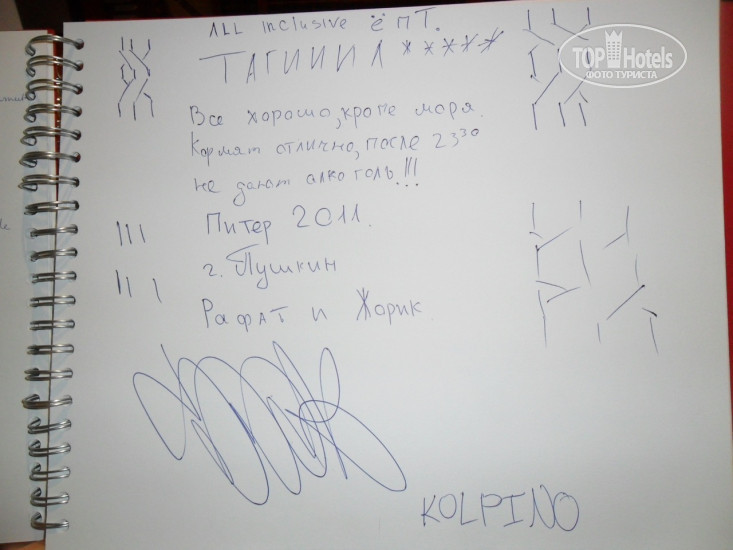 ALL inclusive ёпт.
ТАГИИИЛ*****
Все хорошо, кроме моря.
Кормят отлично, после 23³⁰
не дают алкоголь!!!
Питер 2011.
г. Пушкин
Рафат и Жорик
KOLPINO
TOP Hotels
ФОТО ТУРИСТА